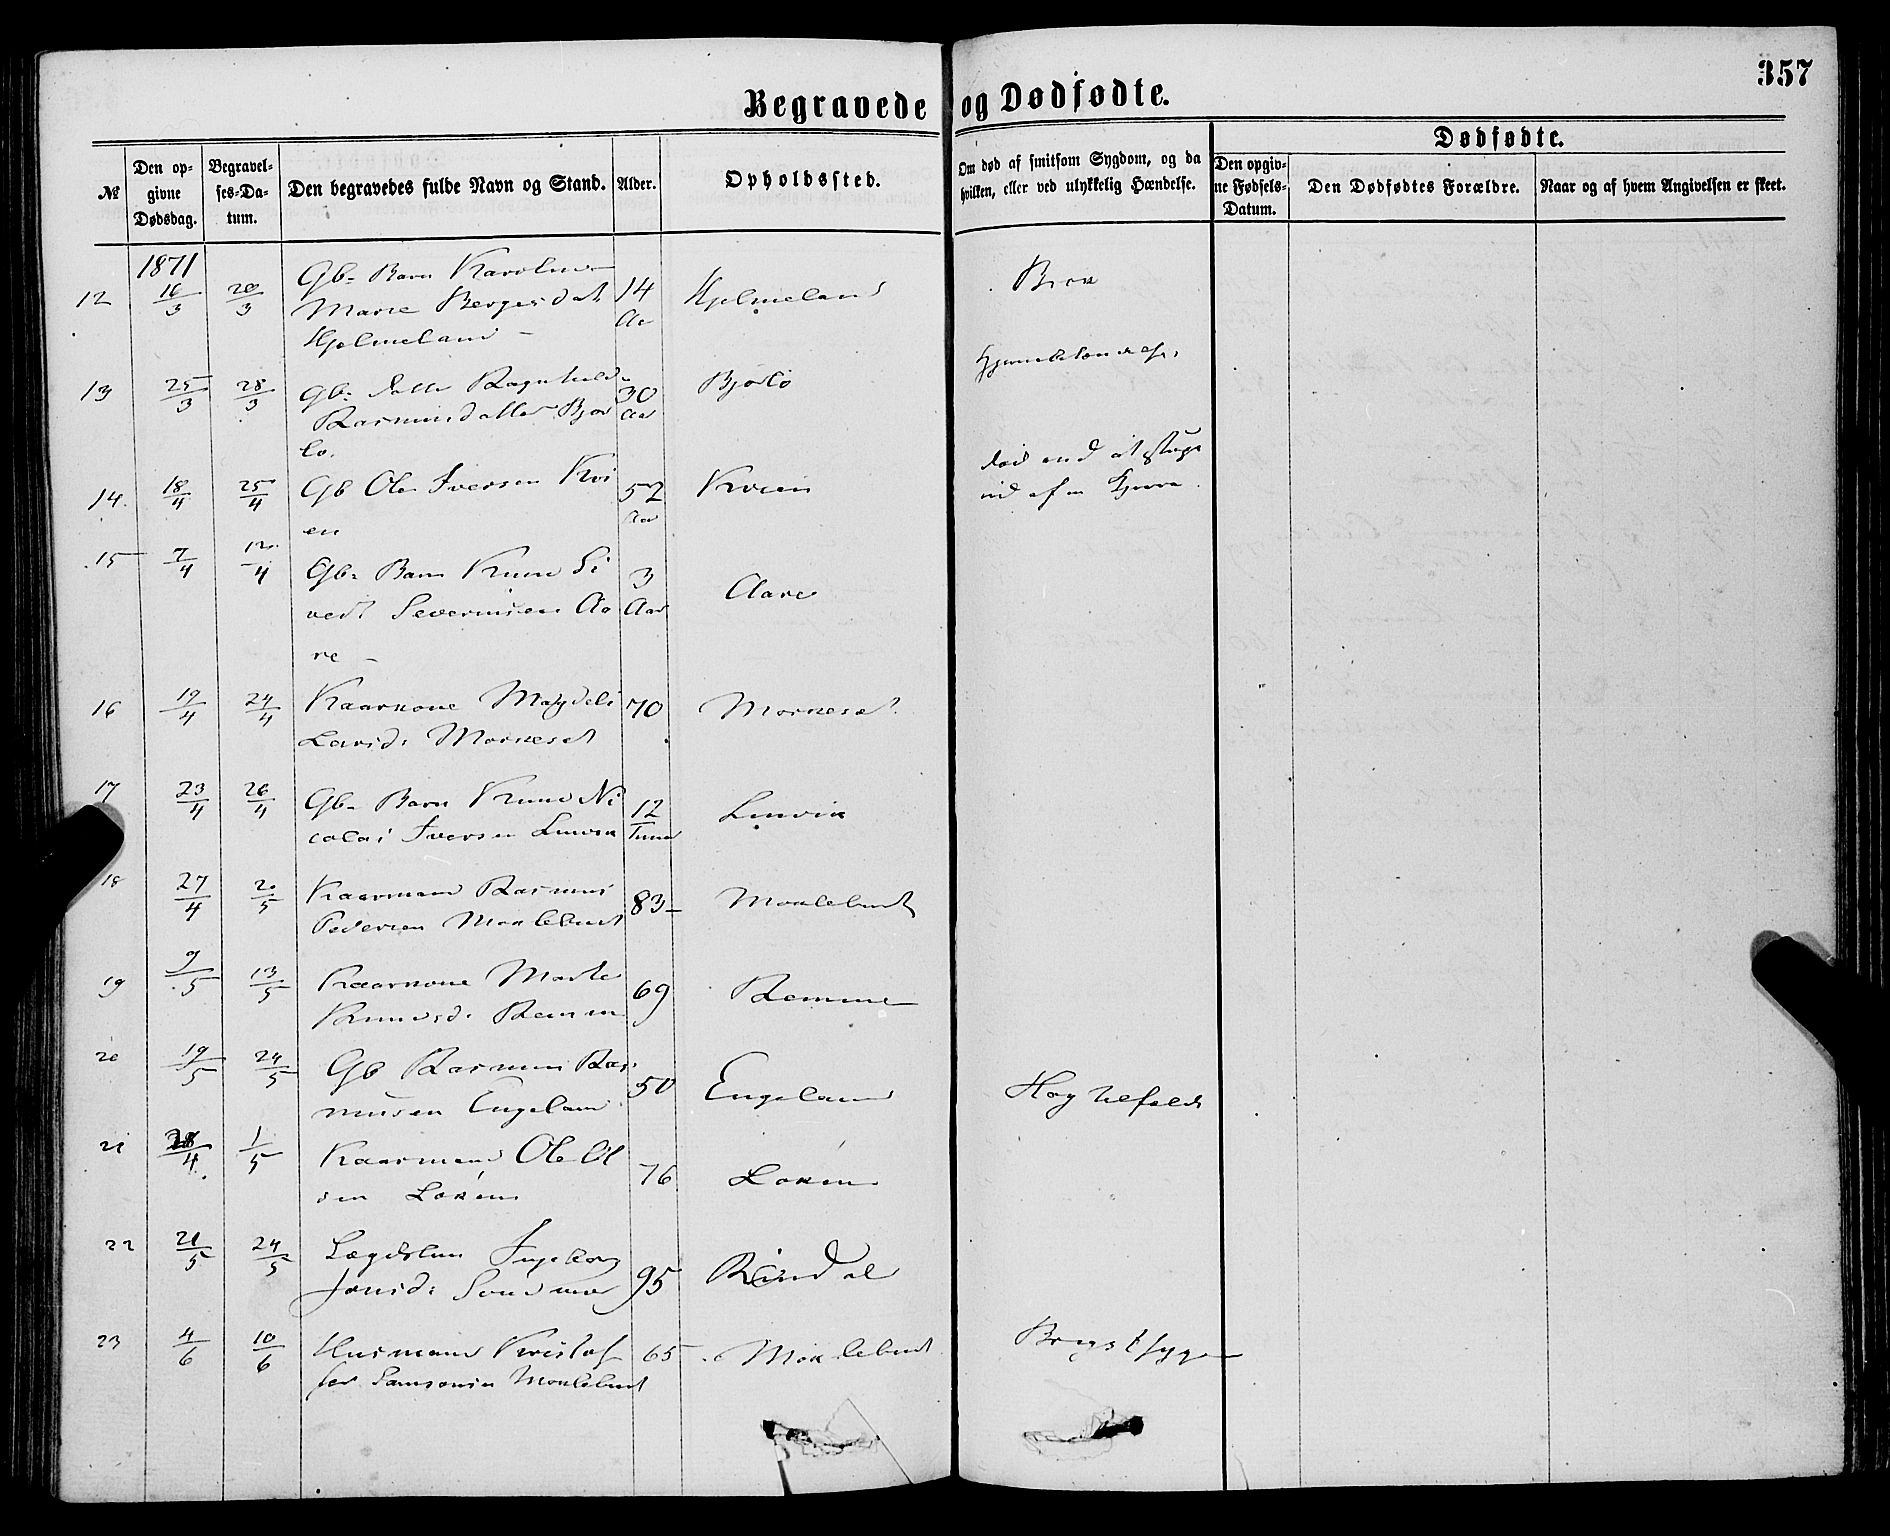 357
Begravede og Dødfødte.
№
Den opgivne Dødsdag.
Begravelses-Datum.
Den begravedes fulde Navn og Stand.
Alder.
Opholdssted.
Om død af smitsom Sygdom, og da
hvilken, eller ved ulykkelig Hændelse.
Dødfødte.
Den opgivne Fødsels-Datum.
Den Dødfødtes Forældre.
Naar og af hvem Angivelsen er skeet.
1871
12 16/3 20/3 Gb. Barn Karoline 14 Hjelmeland
Marie Bergesdat Aar
Hjelmeland
13 25/3 28/3 Gb: Datter Ragnhilde 30 Bjørlo
Rasmusdatter Bjør Aar
lo.
14. 18/4 25/4 Gb Ole Iversen Kvi 52 Kvien død ved at styge
en Aar ud af en
15 7/4 12/4 Gb. Barn Knud Si 3 Aare
vert Severinsen Aa Aar
re
16 19/4 24/4 Kaarkone Magdeli 70 Morkeset
Larsd: Morkeset
17 23/4 26/4 Gb. Barn Knud Ni 12 Linvik
colai Iversen Linvik Timer
18 27/4 2/5 Kaarmand Rasmus 83 Moklebust
Pedersen Moklebust
19 9/5 13/5 Kaarkone Marte 69 Remme
Knudsd. Remm
20 19/5 24/5 Gb Rasmus Ras 50 Engeland
musen Engeland
21 28/4 1/5 Kaarmand Ole Ol 76 Loken
sen Loken
22 21/5 24/5 Lægdslem Ingeborg 95 Rindal
Jonsd:
23 4/6 10/6 Husmand Kristof 65 Moklebust Brystsyge
fer Samsonsen Moklebust